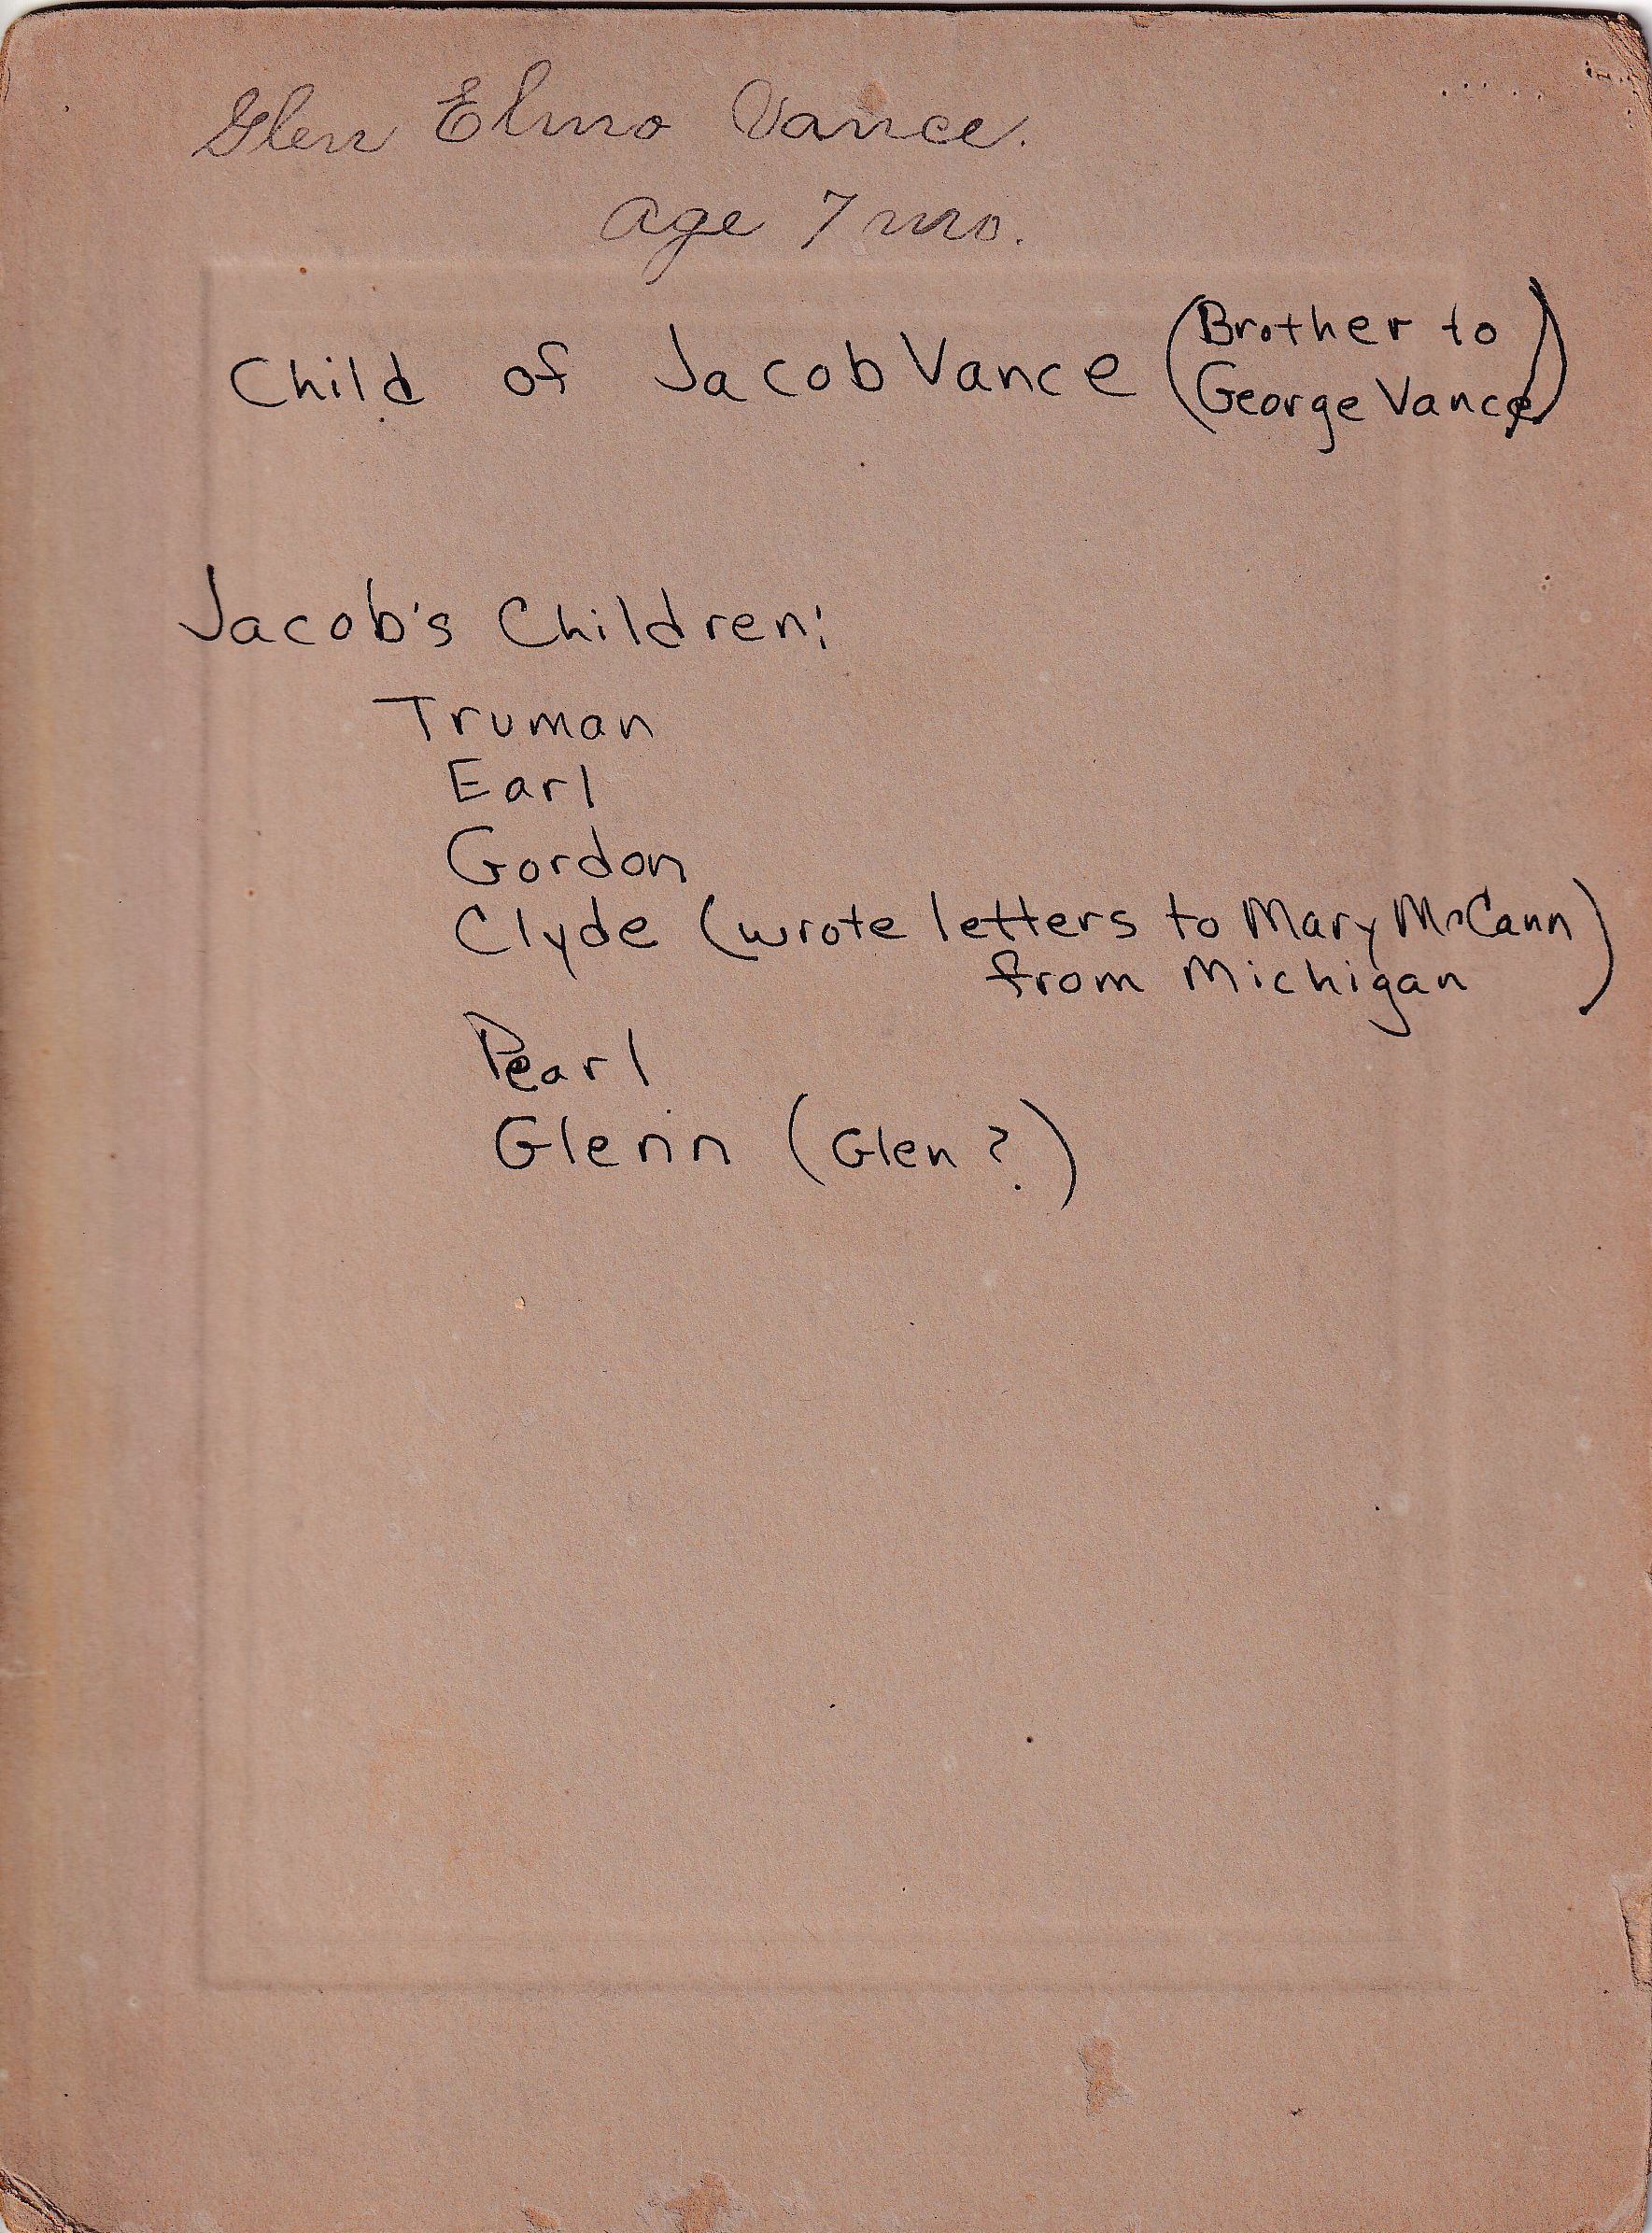 Glen Elmo Vance.
age 7 mo.
Child of Jacob Vance (Brother to
George Vance)
Jacob's Children:
Truman
Earl
Gordon
Clyde (wrote letters to Mary McCann)
from Michigan
Pearl
Glenn (Glen?)